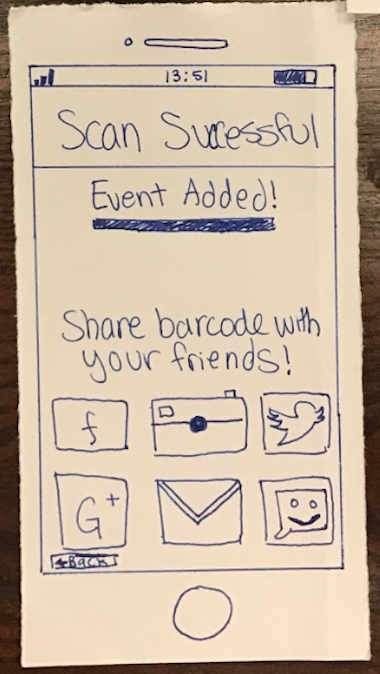 13:51
Scan Successful
Event Added!
Share barcode with
your friends!
f
G+
←Back